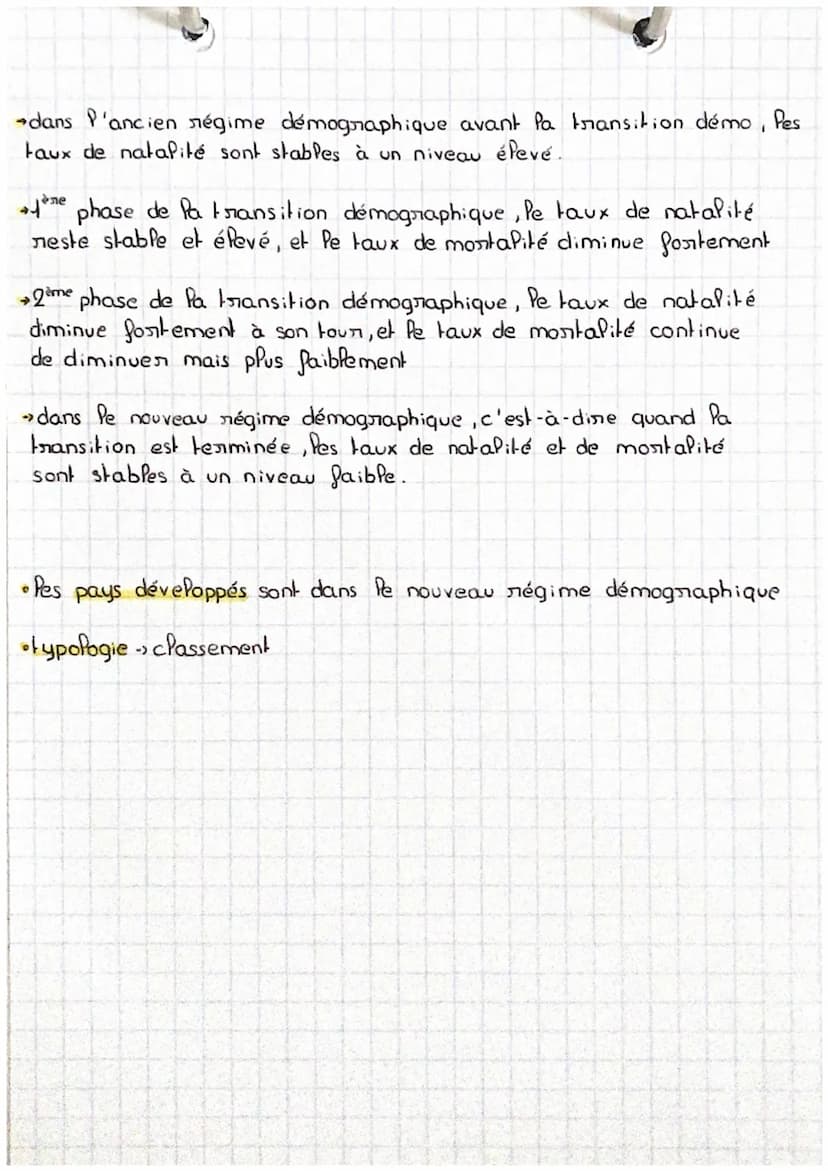 →dans l'ancien régime démographique avant la transition démo, les
taux de natalité sont stables à un niveau élevé.
→1ère phase de la transition démographique, le taux de natalité
reste stable et élevé, et le taux de mortalité diminue fortement
→2ème phase de la transition démographique, le taux de natalité
diminue fortement à son tour, et le taux de mortalité continue
de diminuer mais plus faiblement
→dans le nouveau régime démographique, c'est-à-dire quand la
transition est terminée, les taux de natalité et de mortalité
sont stables à un niveau faible.
•les pays développés sont dans le nouveau régime démographique
•typologie -> classement